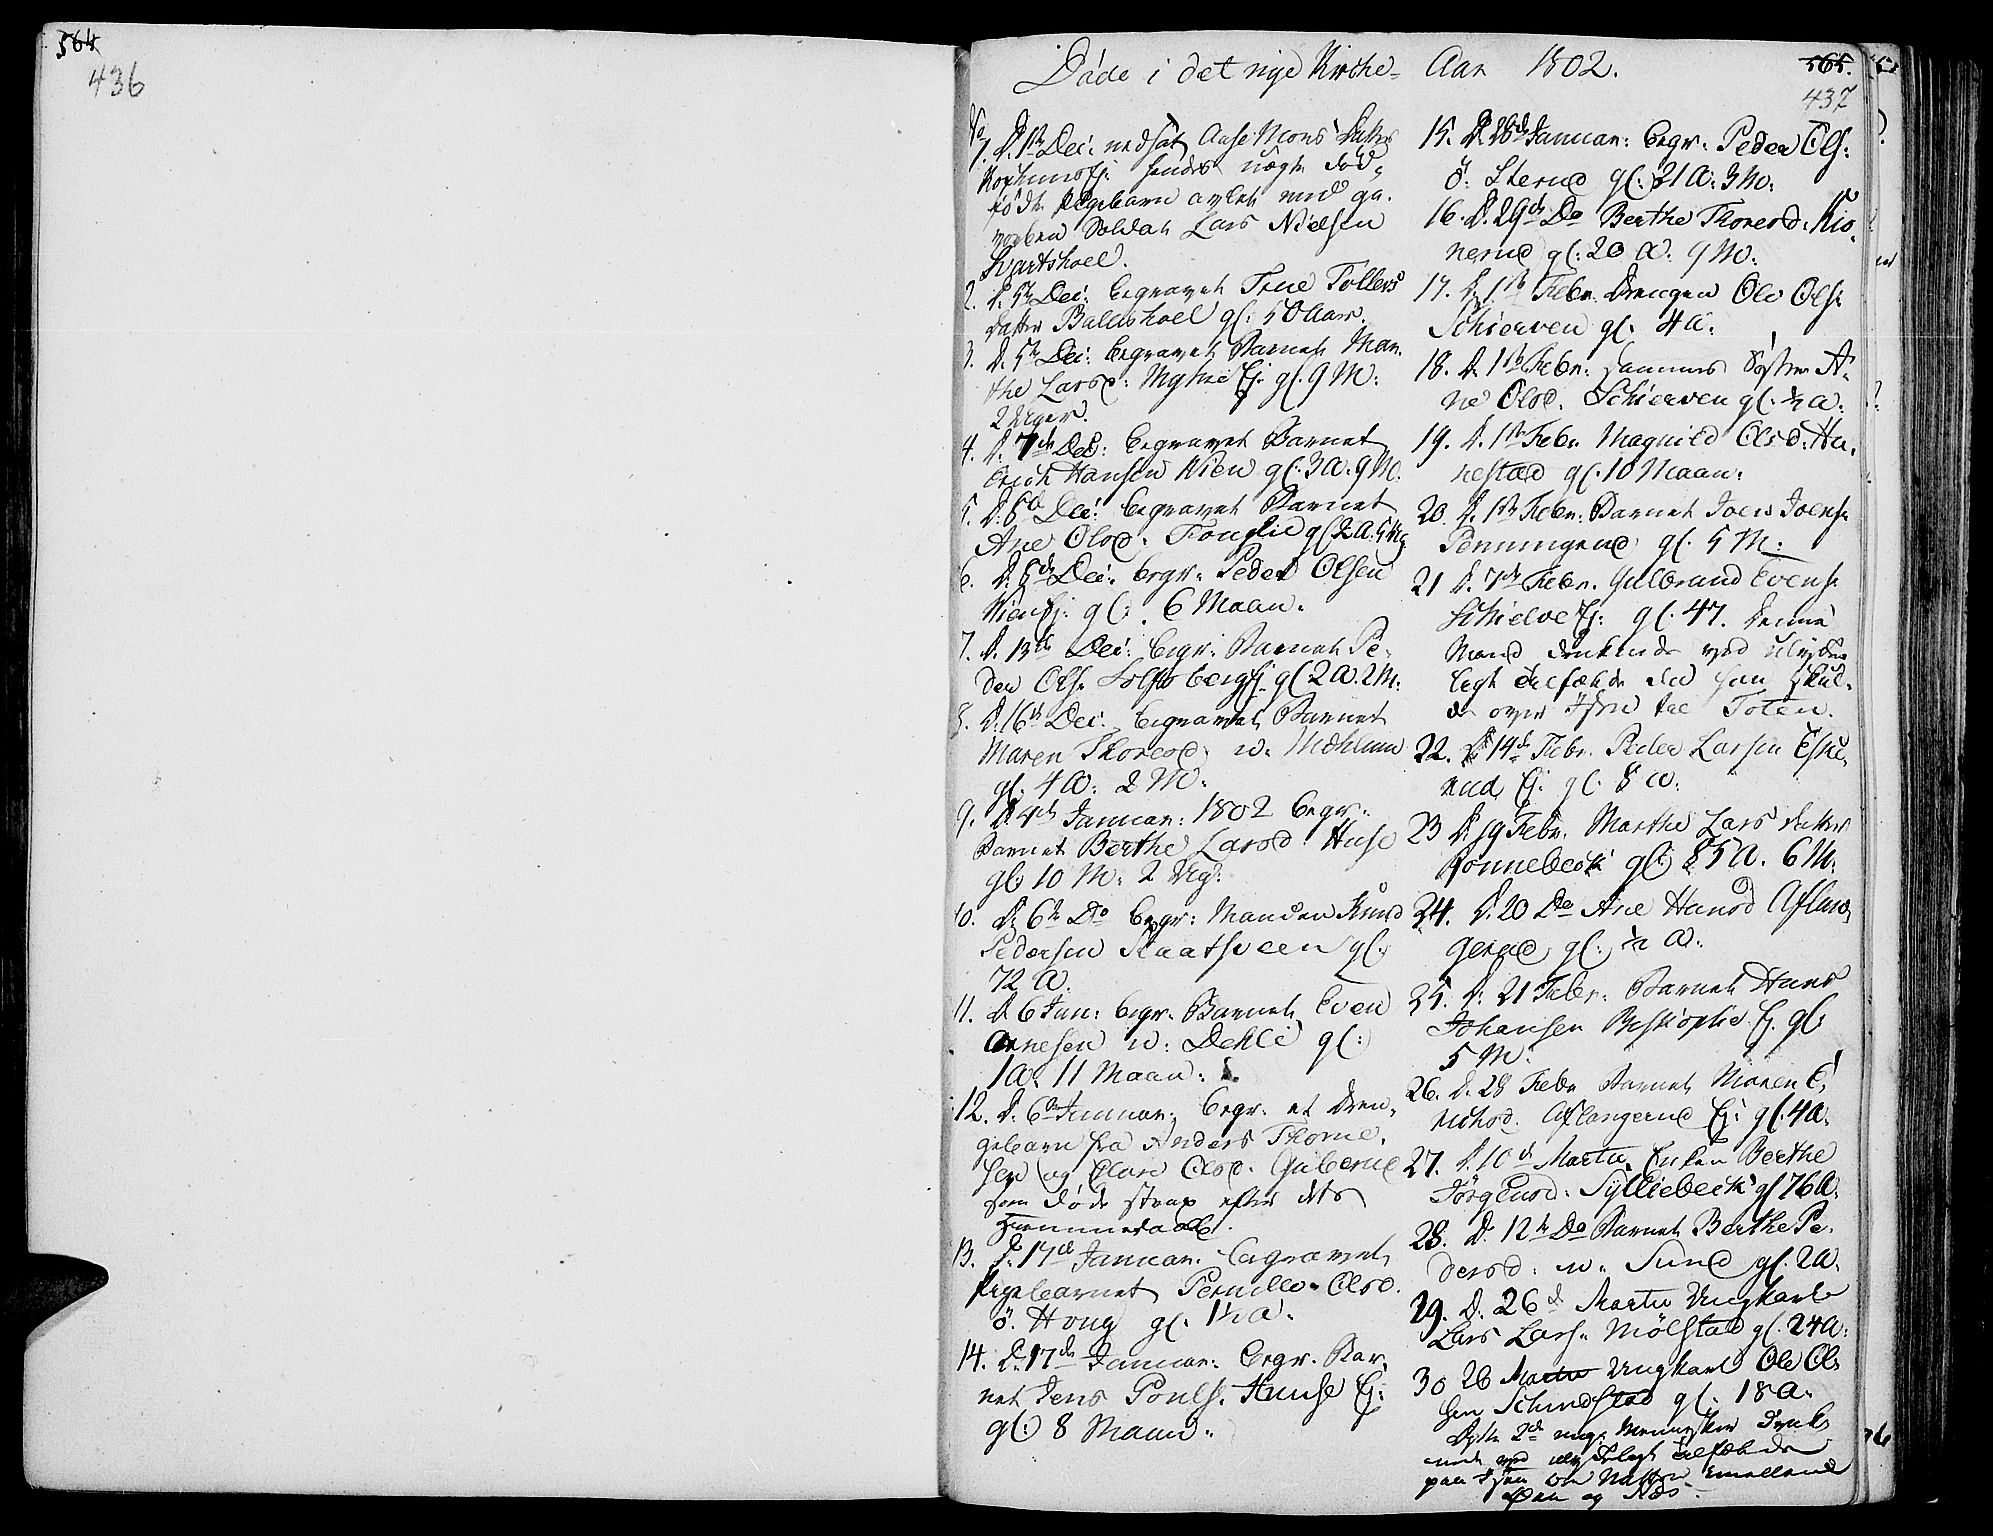 564
436
Døde i det nye Kirke- Aar 1802.
565.
437
No
1. D. 1ste Dec: nedsat Aase Mons datter
hendes uægte død-
født Pigebarn avlet med ge-
vorben Soldat Lars Nielsen
Svartshoel.
2. D. 5te Dec: begravet Tollevs
datter Balleshoel gl: 50 Aar.
3. D. 5te Dec: begravet Barnet Mar-
the Larsd: Ej. gl. 9 M:
2 Uger.
4. D. 7de Dec: begravet Barnet
Erich Hansen Wien gl. 3 A. 9 M.
5. D. 8de Dec: begravet Barnet
Ane Olsd. gl 2 A. 5 Ug
6. D. Dec: begr. Peder Olsen
Wien Ej. gl: 6 Maan.
7. D. 13de Dec: begr: Barnet Pe-
der Ols. Solbergs Ej. gl 2 A. 2 M.
8. D. 16de Dec. begravet Barnet
Maren Thoresd. n: Mæhlum
gl. 4 A: 2 M:
9. D. 4de Januar: 1802 begr:
Barnet Berthe Larsd. Huse
gl: 10 M: 2 Ug:
10. D. 6te Do begr: Manden Knud
Pedersen Raatsveen gl:
72 A.
11. D. 6 Jan: begr. Barnet Even
Arnesen n: Dehli gl:
1 A: 11 Maan:
12. D. 6te Januar: begr. et Dren-
gebarn fra Anders
sen og Olsd.
som døde strax efter dets
Hjemmedaab.
13. D. 17de Januar. begravet
Pigebarnet Pernille Olsd.
ö. Houg gl. 1½ A.
14. D. 17de Januar: begr. Bar-
net Jens Pouls. Huuse Ej:
gl: 8 Maan:
15. D. 28de Januar: begr: Peder Ols:
ö: Sterud gl: 21 A: 3 M:
16. D. 29de Do Berthe Thoresd: Kio-
nerud gl: 20 A. 9 M:
17. D. 1ste Febr. Drengen Ole Ols.
Schierven gl. 4 A:
18. D. 1ste Febr: sammes Søster A-
ne Olsd. Schierven gl. ½ A:
19. D. 1ste Febr. Magnild Olsd: Ha-
nestad gl. 10 Maan:
20. D. 1ste Febr: Barnet Joen Joens.
Penningrud gl. 5 M:
21 D. 7de Febr. Gulbrand Evens.
Schielve Ej: gl. 47. Denne
Mand druknede ved ulykke-
ligt Tilfælde da han skul-
de over Isen til Toten.
22. D. 14de Febr. Peder Larsen Eske-
rud Ej. gl. 8 A:
23 D. 19 Febr. Marthe Lars datter
Rønnebeck gl: 85 A. 6 M:
24. D. 20 Do Ane Hansd Aflan-
gerud gl: ½ A:
25. D: 21 Febr: Barnet Hans
Johansen Ej. gl:
5 M:
26. D. 28 Febr Barnet Maren E-
richsd. Aflangerud Ej: gl. 4 A.
27. D. 10de Martii Enken Berthe
Jørgensd: Sylliebeck gl 76 A.
28. D. 12te Do Barnet Berthe Pe-
dersd: n: Sund gl. 2 A.
29. D. 26de Martii Ungkarl
Lars Lars. Mølstad gl. 24 A:
30 26 Martii Ungkarl Ole Ol-
sen Schredstad gl. 18 A.
Disse 2de unge Mennesker druk-
nede ved ulykkeligt Tilfælde
paa Isen om Natten emellem
og Næs.